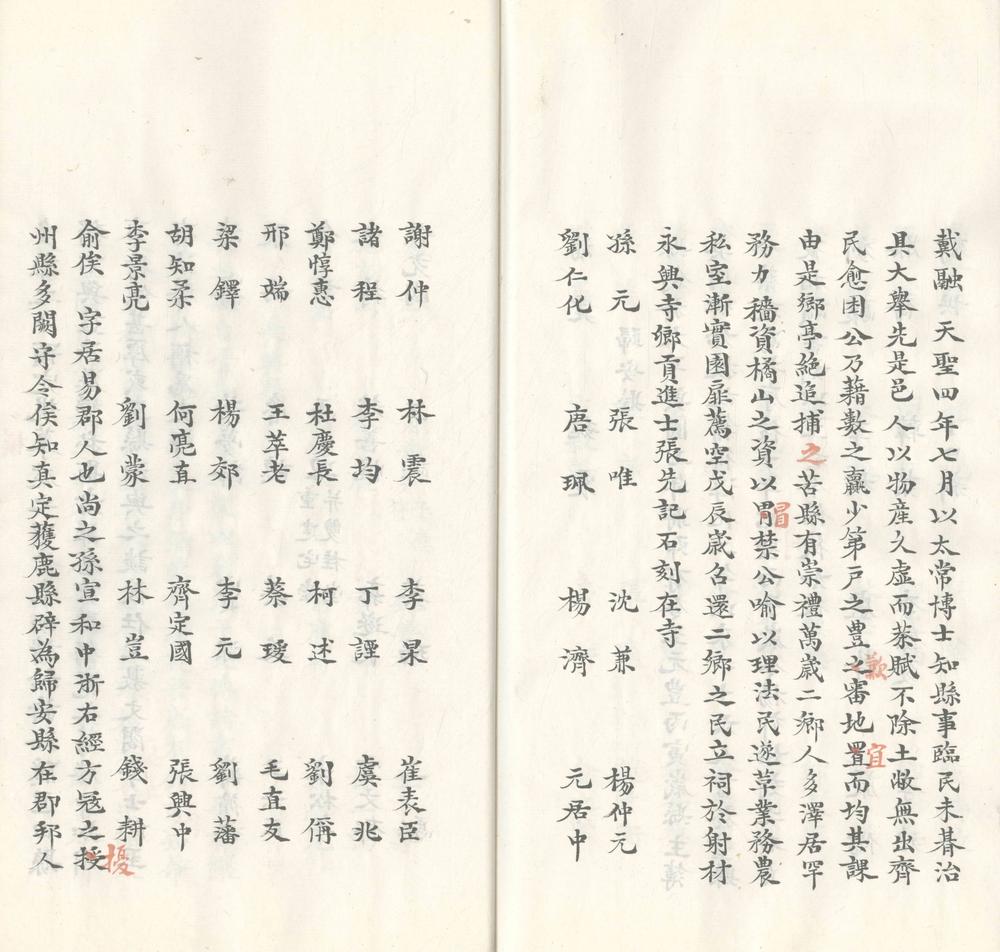 戴融　天聖四年七月以太常博士知縣事臨民未朞治
具大舉先是邑人以物產久虛而蒸賦不除土敝無出齊
民愈困公乃藉數之羸少第戸之豊之審地置而均其課
歉
宜
由是鄉亭絶追捕之苦縣有崇禮萬歲二鄉人多澤居罕
務力穡資橘山之資以胃禁公喻以理法民遂草業務農
冒
私室漸實圄扉薦空戊辰歲召還二鄉之民立祠於射材
永興寺鄉貢進士張先記石刻在寺
孫元　張唯　沈兼　楊仲元
劉仁化　唐珮　楊濟　元居中
謝仲　林震　李杲　崔表臣
諸程　李均　丁諲　虞兆
鄭惇惠　杜慶長　柯述　劉偁
邢端　王萃老　蔡瑗　毛直友
梁鐸　楊郊　李元　劉藩
胡知柔　何亮直　齊定國　張興中
李景亮　劉蒙　林豈　錢耕
俞俟　字居易郡人也尚之孫宣和中浙右經方宼之授
擾
州縣多闕守令俟知真定獲鹿縣辟為歸安縣在郡邦人